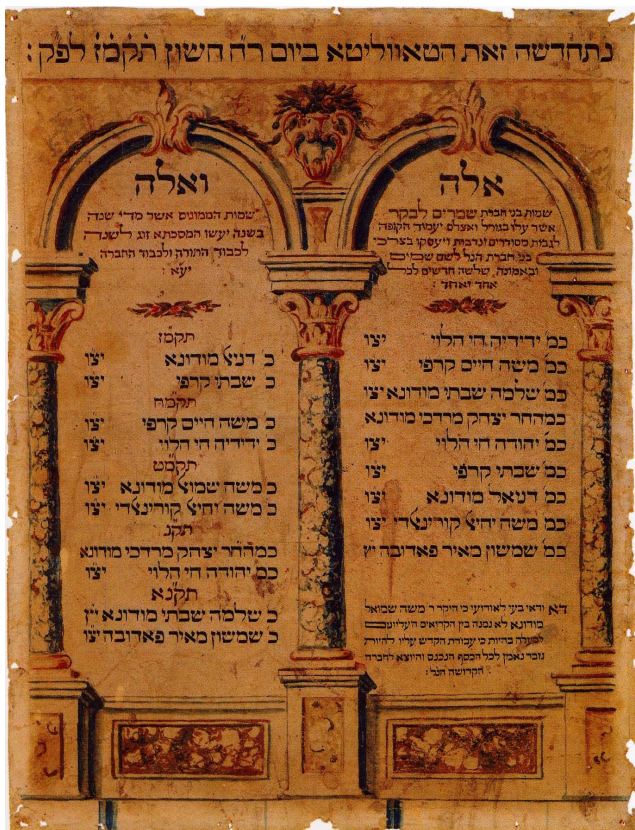 נתחדשה זאת הטאווליטא ביום ר״ח חשון תקמ״ז לפ״ק :
אלה
שמות בני חברת שמרים לבקר
אשר עלו בגורל ואצלם יעמוד הקופה
לגבות מסודרים ונדבות ויעסקו בצרכי
בני חברת הנ״ל לשם שמים
ובאמונה, שלשה חדשים לכל
אחד ואחד :
כמ׳ ידידיה חי הלוי יצ״ו
כמ׳ משה חיים קרפי יצ״ו
כמ׳ שלמה שבתי מודונא יצ״ו
כמהח״ר יצחק מרדכי מודונא
כמ׳ יהודה חי הלוי יצ״ו
כמ׳ שבתי קרפי יצ״ו
כמ׳ דניאל מודונא יצ״ו
כמ׳ משה יחיאל קורינאלדי יצ״ו
כמ׳ שמשון מאיר פאדובה יץ
דא ודאי בעי לאודועי כי היקר ר׳ משה שמואל
מודונא לא נמנה בין הקרואים העליונים
למעלה בהיות כי עבודת הקדש עליו להיות
גזבר נאמן לכל הכסף הנכנס והיוצא לחברה
הקדושה הנ״ל :
ואלה
שמות הממונים אשר מדי שנה
בשנה יעשו המסכתא זוג לשנה
לכבוד התורה ולכבוד החברה
יע״א :
תקמ״ז
כ׳ דניאל מודונא יצ״ו
כ׳ שבתי קרפי יצ״ו
תקמ״ח
כ׳ משה חיים קרפי יצ״ו
כ׳ ידידיה חי הלוי יצ״ו
תקמ״ט
כ׳ משה שמואל מודונא יצ״ו
כ׳ משה יחיאל קורינאלדי יצ״ו
תק״נ
כמהח״ר יצחק מרדכי מודונא
כמ׳ יהודה חי הלוי יצ״ו
תקנ״א
כ׳ שלמה שבתי מודונא יץ
כ׳ שמשון מאיר פאדובה יצ״ו